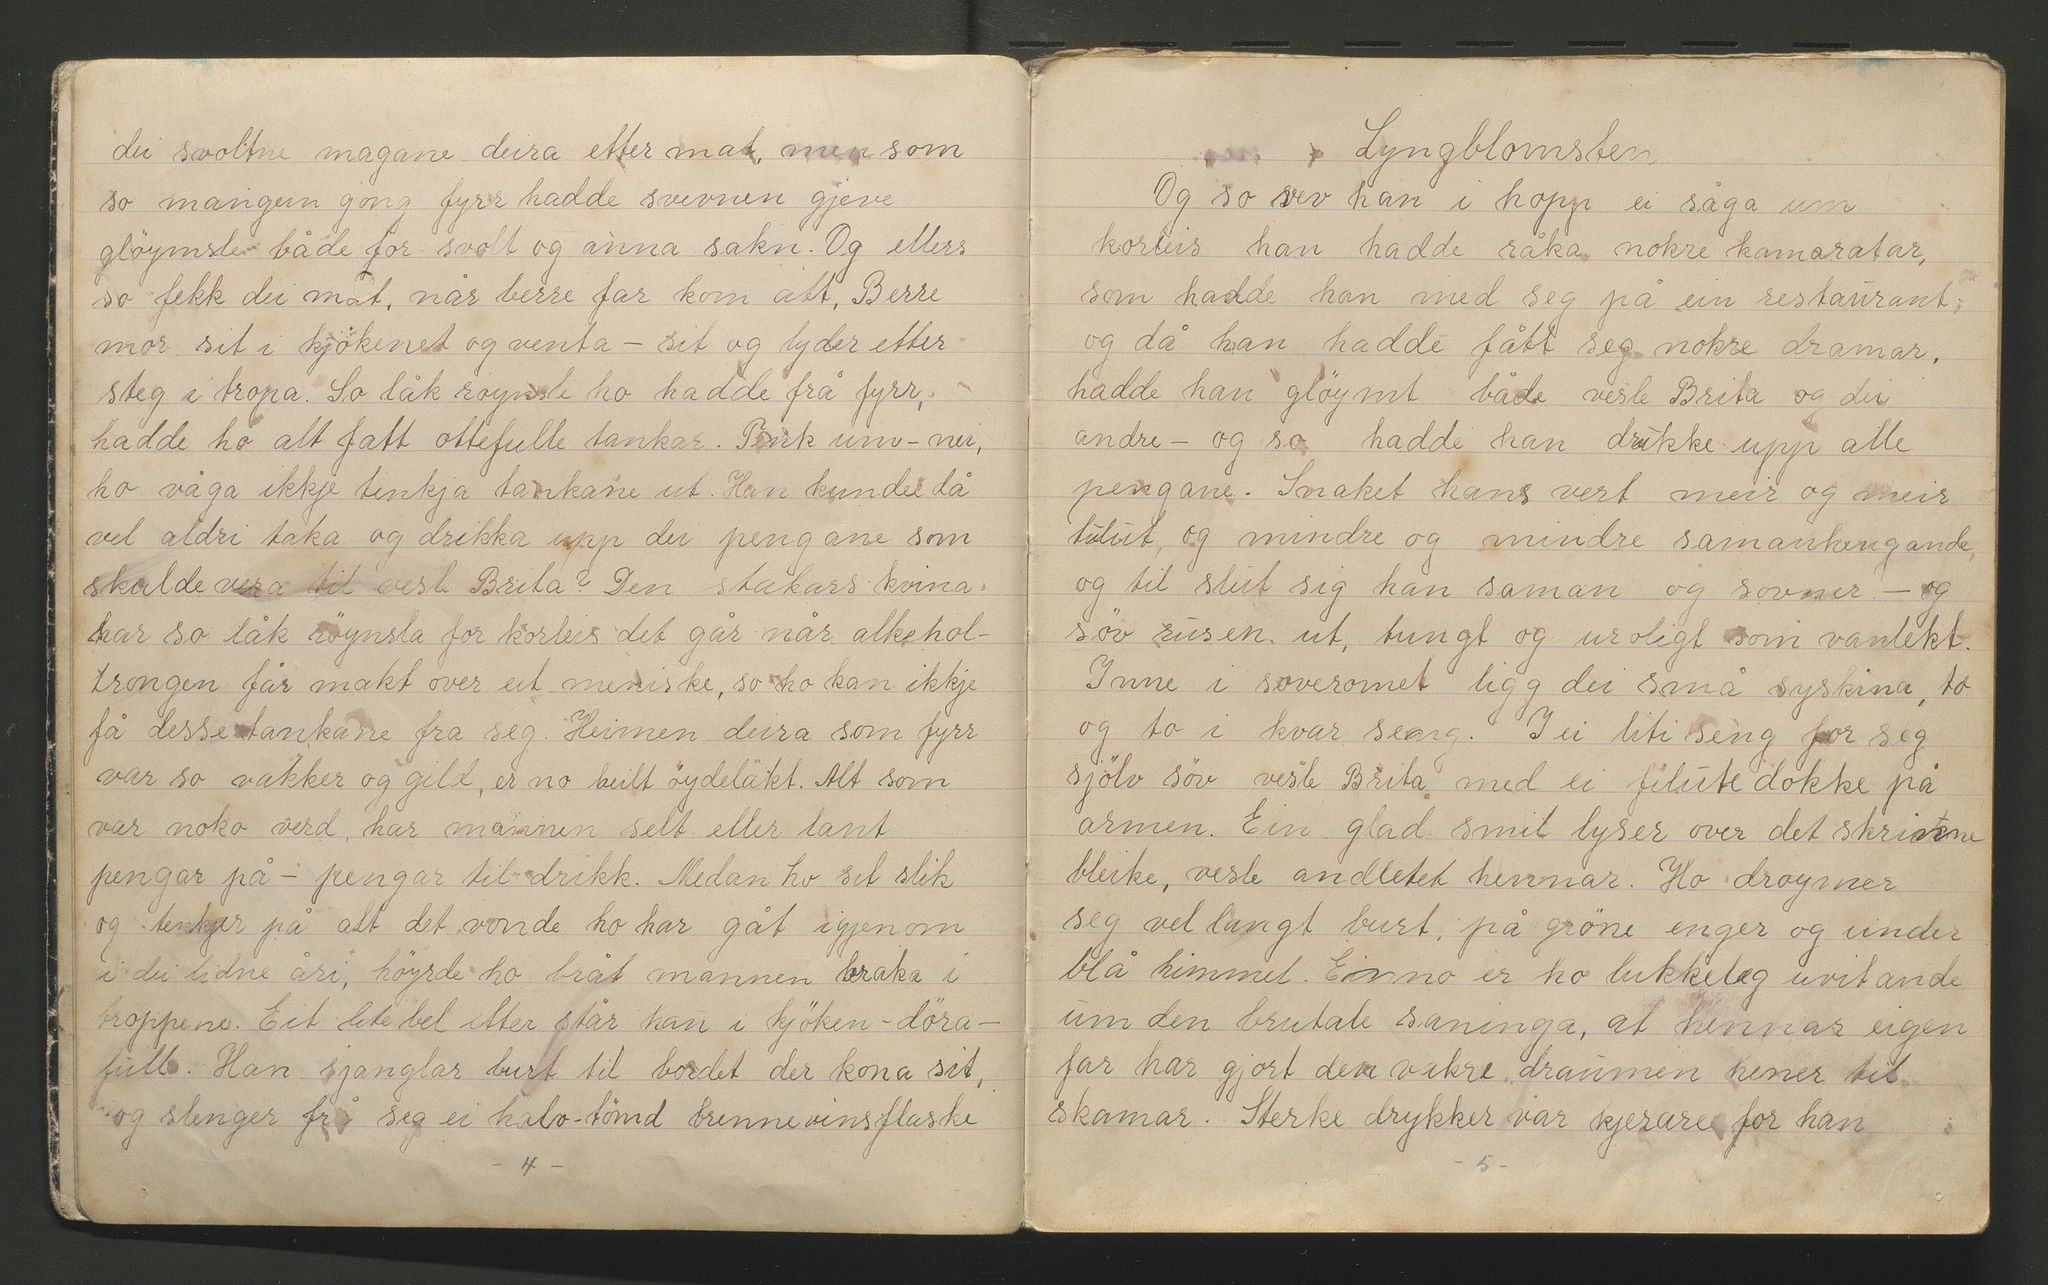 dei svoltne magane deira etter mat, men som
so mangein gong fyrr hadde svevnen gjeve
glöymsle både for svolt og anna sakn. Og ellers
so fekk dei mat, når berre far kom att, Berre
mor sit i kjökenet og venta – sit og lyder etter
steg i tropa. So låk röynsle ho hadde frå fyrr,
hadde ho alt fått ottefulle tankar. Tenk um – nei,
ho våga ikkje tenkja tankane ut. Han kunde då
vel aldri taka og drikka upp dei pengane som
skulde vera til vesle Brita? Den stakars kvina
har so låk röynsla for korleis det går når alkehol-
trongen får makt over eit meniske, so ho kan ikkje
få desse tankane fra seg. Heimen deira som fyrr
var so vakker og gild, er no heilt öydeläkt. Alt som
var noko verd, har mannen selt eller lant
pengar på – pengar til drikk. Medan ho sit slik
og tenkjer på alt det vonde ho har gåt igjenom
i dei lidne åri, höyrde ho bråt mannen braka i
troppene. Eit lite bel etter står han i kjöken-döra –
full. Han sjanglar burt til bordet der kona sit,
og slenger frå seg ei halv-tömd brennevinsflaske
- 4 -
Lyngblomsten
Og so vev han i hopp ei såga um
korleis han hadde råka nokre kamaratar,
som hadde han med seg på ein restaurant;
og då han hadde fått seg nokre dramar,
hadde han glöymt både vesle Brita og dei
andre – og so hadde han drukke upp alle
pengane. Snaket hans vert meir og meir
tulut, og mindre og mindre samanhengande,
og til slut sig han saman og sovner – og
söv rusen ut, tungt og uroligt som vanlekt.
Inne i soveromet ligg dei små syskina, to
og to i kvar seng. I ei liti seng for seg
sjölv söv vesle Brita med ei filutedokke på
armen. Ein glad smil lyser over det skrinne
bleike, vesle andletet hennar. Ho dröymer
seg vel langt burt, på gröne enger og under
blå himmel. Enno er ho lukkeleg uvitande
um den brutale saninga, at hennar eigen
far har gjort den vakre draumen hener til
skamar. Sterke drykker var kjerare for han
- 5 -